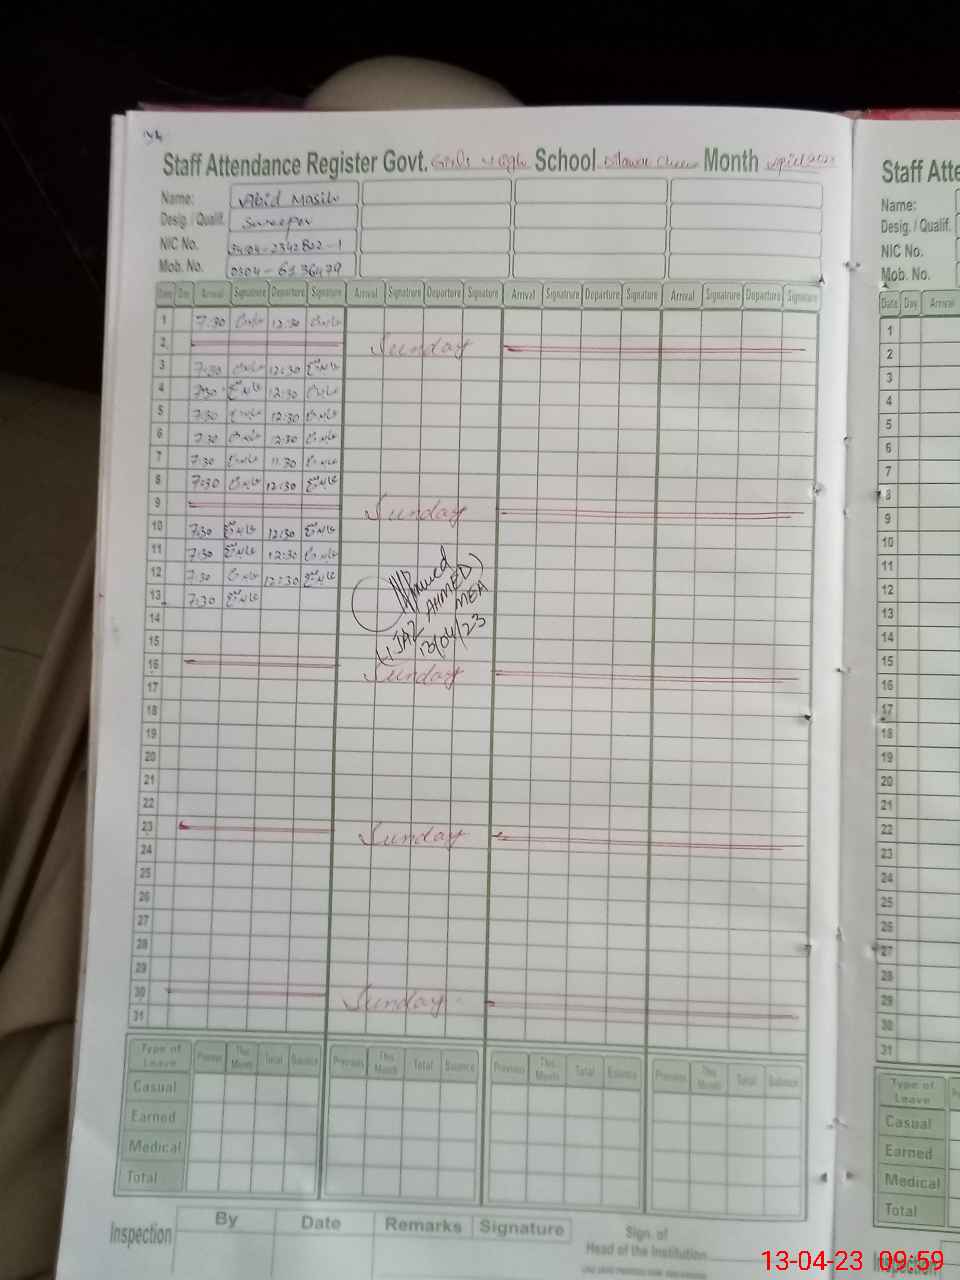 Staff Attendance Register Govt. Girls High School Month April 2023
Name: Abid Masih
Desig. / Qualif. Sweeper
NIC No.
Mob. No. 0304-6136479
Date Day Arrival Signature Departure Signature Arrival Signature Departure Signature Arrival Signature Departure Signature Arrival Signature Departure Signature
1 7:30 12:30
2 Sunday
3 7:30 12:30
4 7:30 12:30
5 7:30 12:30
6 7:30 12:30
7 7:30 11:30
8 7:30 12:30
9 Sunday
10 7:30 12:30
11 7:30 12:30
12 7:30 12:30
13 7:30
14
15
16 Sunday
17
18
19
20
21
22
23 Sunday
24
25
26
27
28
29
30 Sunday
31
AHMED)
(IJAZ AHMED
MEA
13/04/23
Type of Leave Previous This Month Total Balance Previous This Month Total Balance Previous This Month Total Balance Previous This Month Total Balance
Casual
Earned
Medical
Total
Inspection By Date Remarks Signature
Sign. of
Head of the Institution
Staff Atte
Name:
Desig. / Qualif.
NIC No.
Mob. No.
Date Day Arrival
1
2
3
4
5
6
7
8
9
10
11
12
13
14
15
16
17
18
19
20
21
22
23
24
25
26
27
28
29
30
31
Type of Leave
Casual
Earned
Medical
Total
13-04-23 09:59